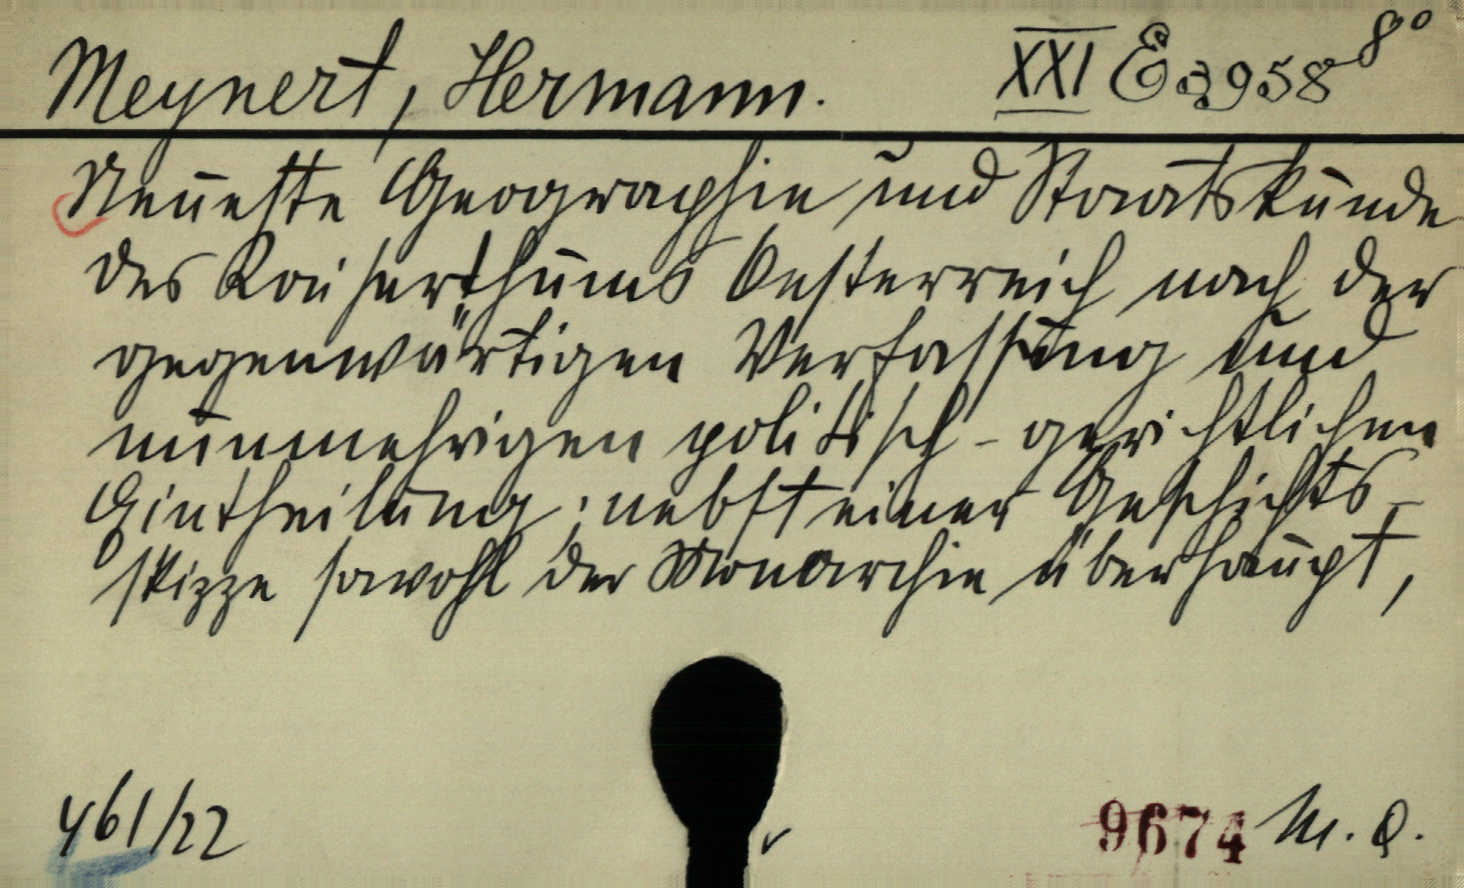 Meynert, Hermann. XXI E 3958 8°
Neueste Geographie und Staatskunde
des Kaiserthums Oesterreich nach der
gegenwärtigen Verfassung und
nunmehrigen politisch-gerichtlichen
Eintheilung; nebst einer Geschichts-
skizze sowohl der Monarchie überhaupt,
461/22
9674 M. Q.